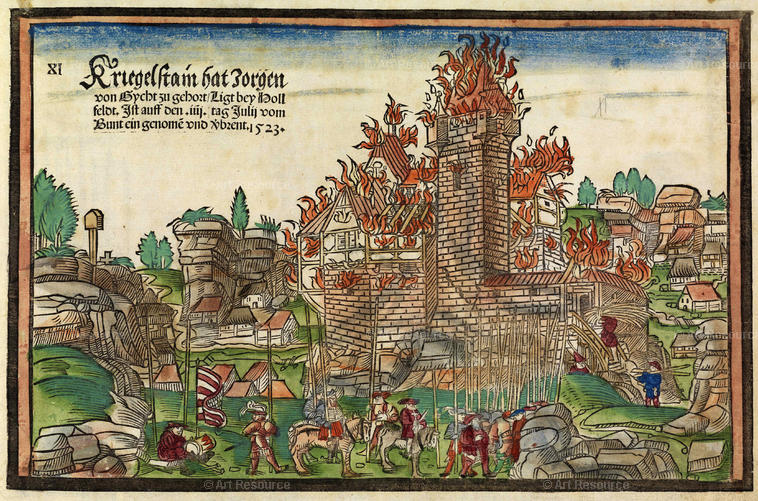 XI
Kriegelstain hat Jorgen
von Gycht zu gehort/Ligt bey Holl
feldt. Ist auff den .iiij. tag Julij vom
Bunt ein genomē vnd v̈brent. 1523.
© Art Resource
© Art Resource